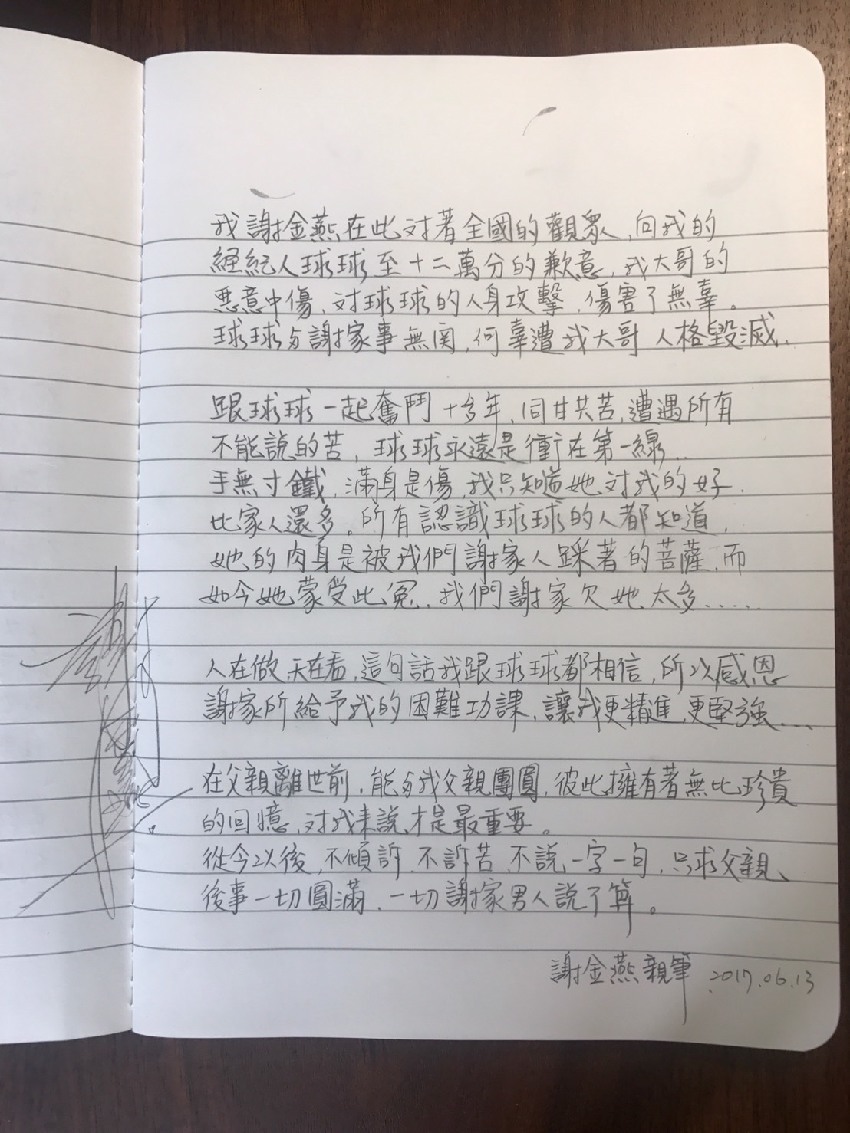 我謝金燕在此对著全國的觀眾，向我的
經紀人球球至十二萬分的歉意，我大哥的
惡意中傷，对球球的人身攻擊，傷害了無辜。
球球与謝家事無関，何辜遭我大哥人格毀滅．
跟球球一起奮鬥十多年，同甘共苦，遭遇所有
不能說的苦，球球永遠是衝在第一線...
手無寸鐵，滿身是傷，我只知道她对我的好，
比家人還多。所有認識球球的人都知道，
她的肉身是被我們謝家人踩著的菩薩，而
如今她蒙受此冤，我們謝家欠她太多......
人在做天在看，這句話我跟球球都相信，所以感恩
謝家所給予我的困難功課，讓我更精進，更堅強....
在父親離世前，能与我父親團圓，彼此擁有著無比珍貴
的回憶，对我来說，才是最重要。
從今以後，不傾訴，不訴苦，不說一字一句，只求父親、
後事一切圓滿，一切謝家男人說了算。
謝金燕親筆 2017.06.13